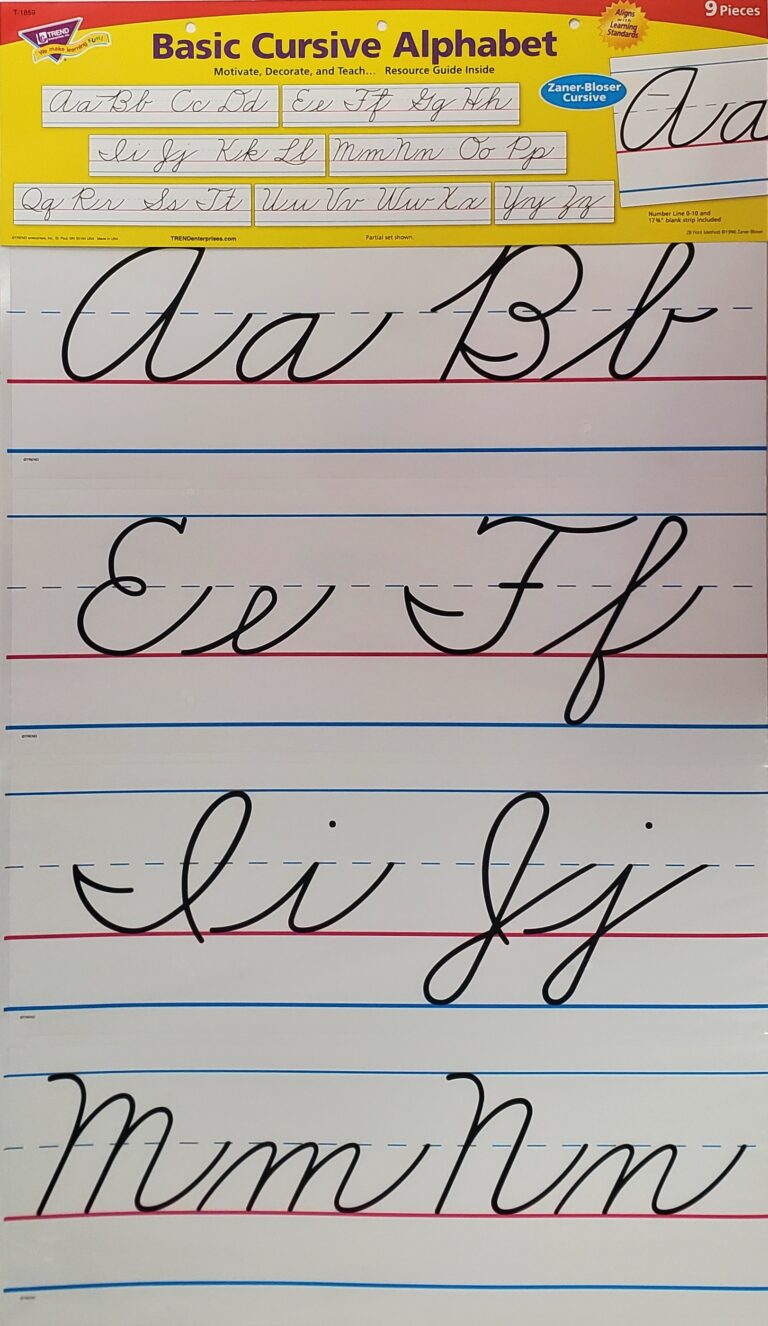 T-1859
9 Pieces
TREND
We make learning FUN!
Basic Cursive Alphabet
Aligns
with
Learning
Standards
Motivate, Decorate, and Teach... Resource Guide Inside
Zaner-Bloser
Cursive
Aa
Aa Bb Cc Dd Ee Ff Gg Hh
Ii Jj Kk Ll Mm Nn Oo Pp
Qq Rr Ss Tt Uu Vv Ww Xx Yy Zz
Number Line 0-10 and
17¾" blank strip included
©TREND enterprises, Inc. St. Paul, MN 55164 USA Made in USA
TRENDenterprises.com
Partial set shown.
ZB Font Method ©1996 Zaner-Bloser
Aa Bb
©TREND
Ee Ff
©TREND
Ii Jj
©TREND
Mm Nn
©TREND